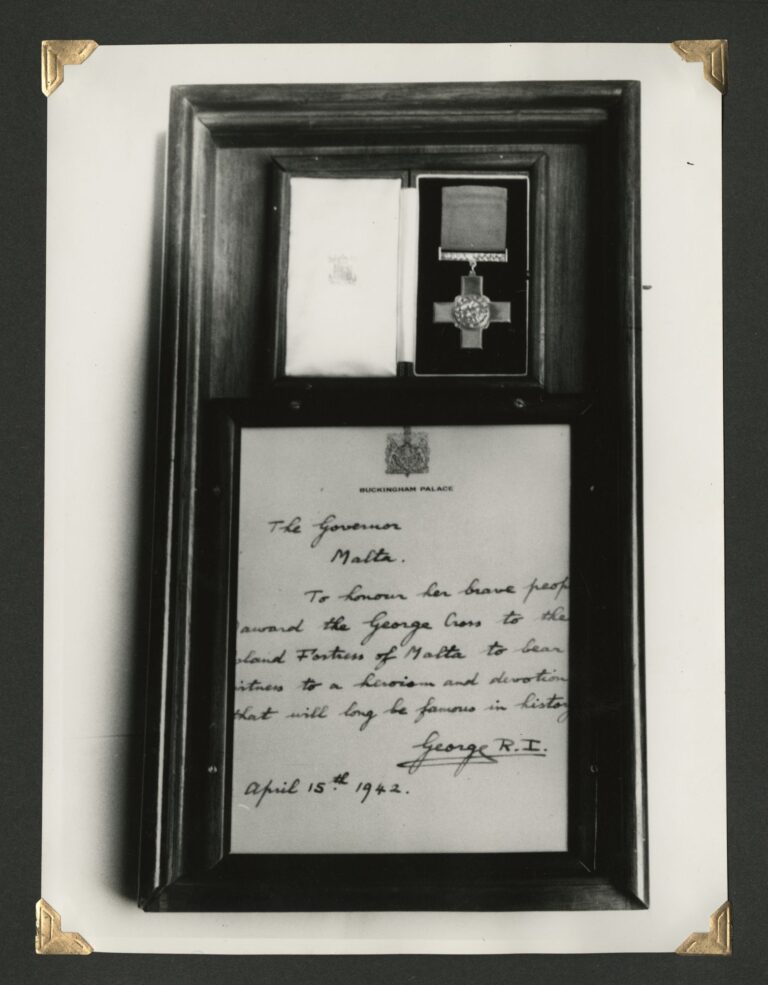 BUCKINGHAM PALACE
The Governor
Malta.
To honour her brave peop
award the George Cross to the
sland Fortress of Malta to bear
itness to a heroism and devotion
that will long be famous in history
George R.I.
April 15th 1942.